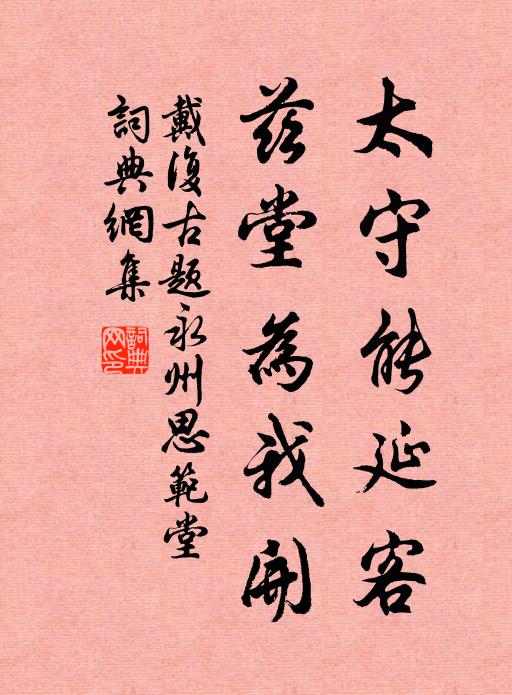 太守能延客
茲堂為我開
戴復古題永州思範堂
詞典網集
詞典網印